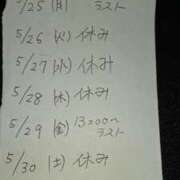 5/25 (月) ラスト
5/26 (火) 休み
5/27 (水) 休み
5/28 (木) 休み
5/29 (金) 13:00〜ラスト
5/30 (土) 休み